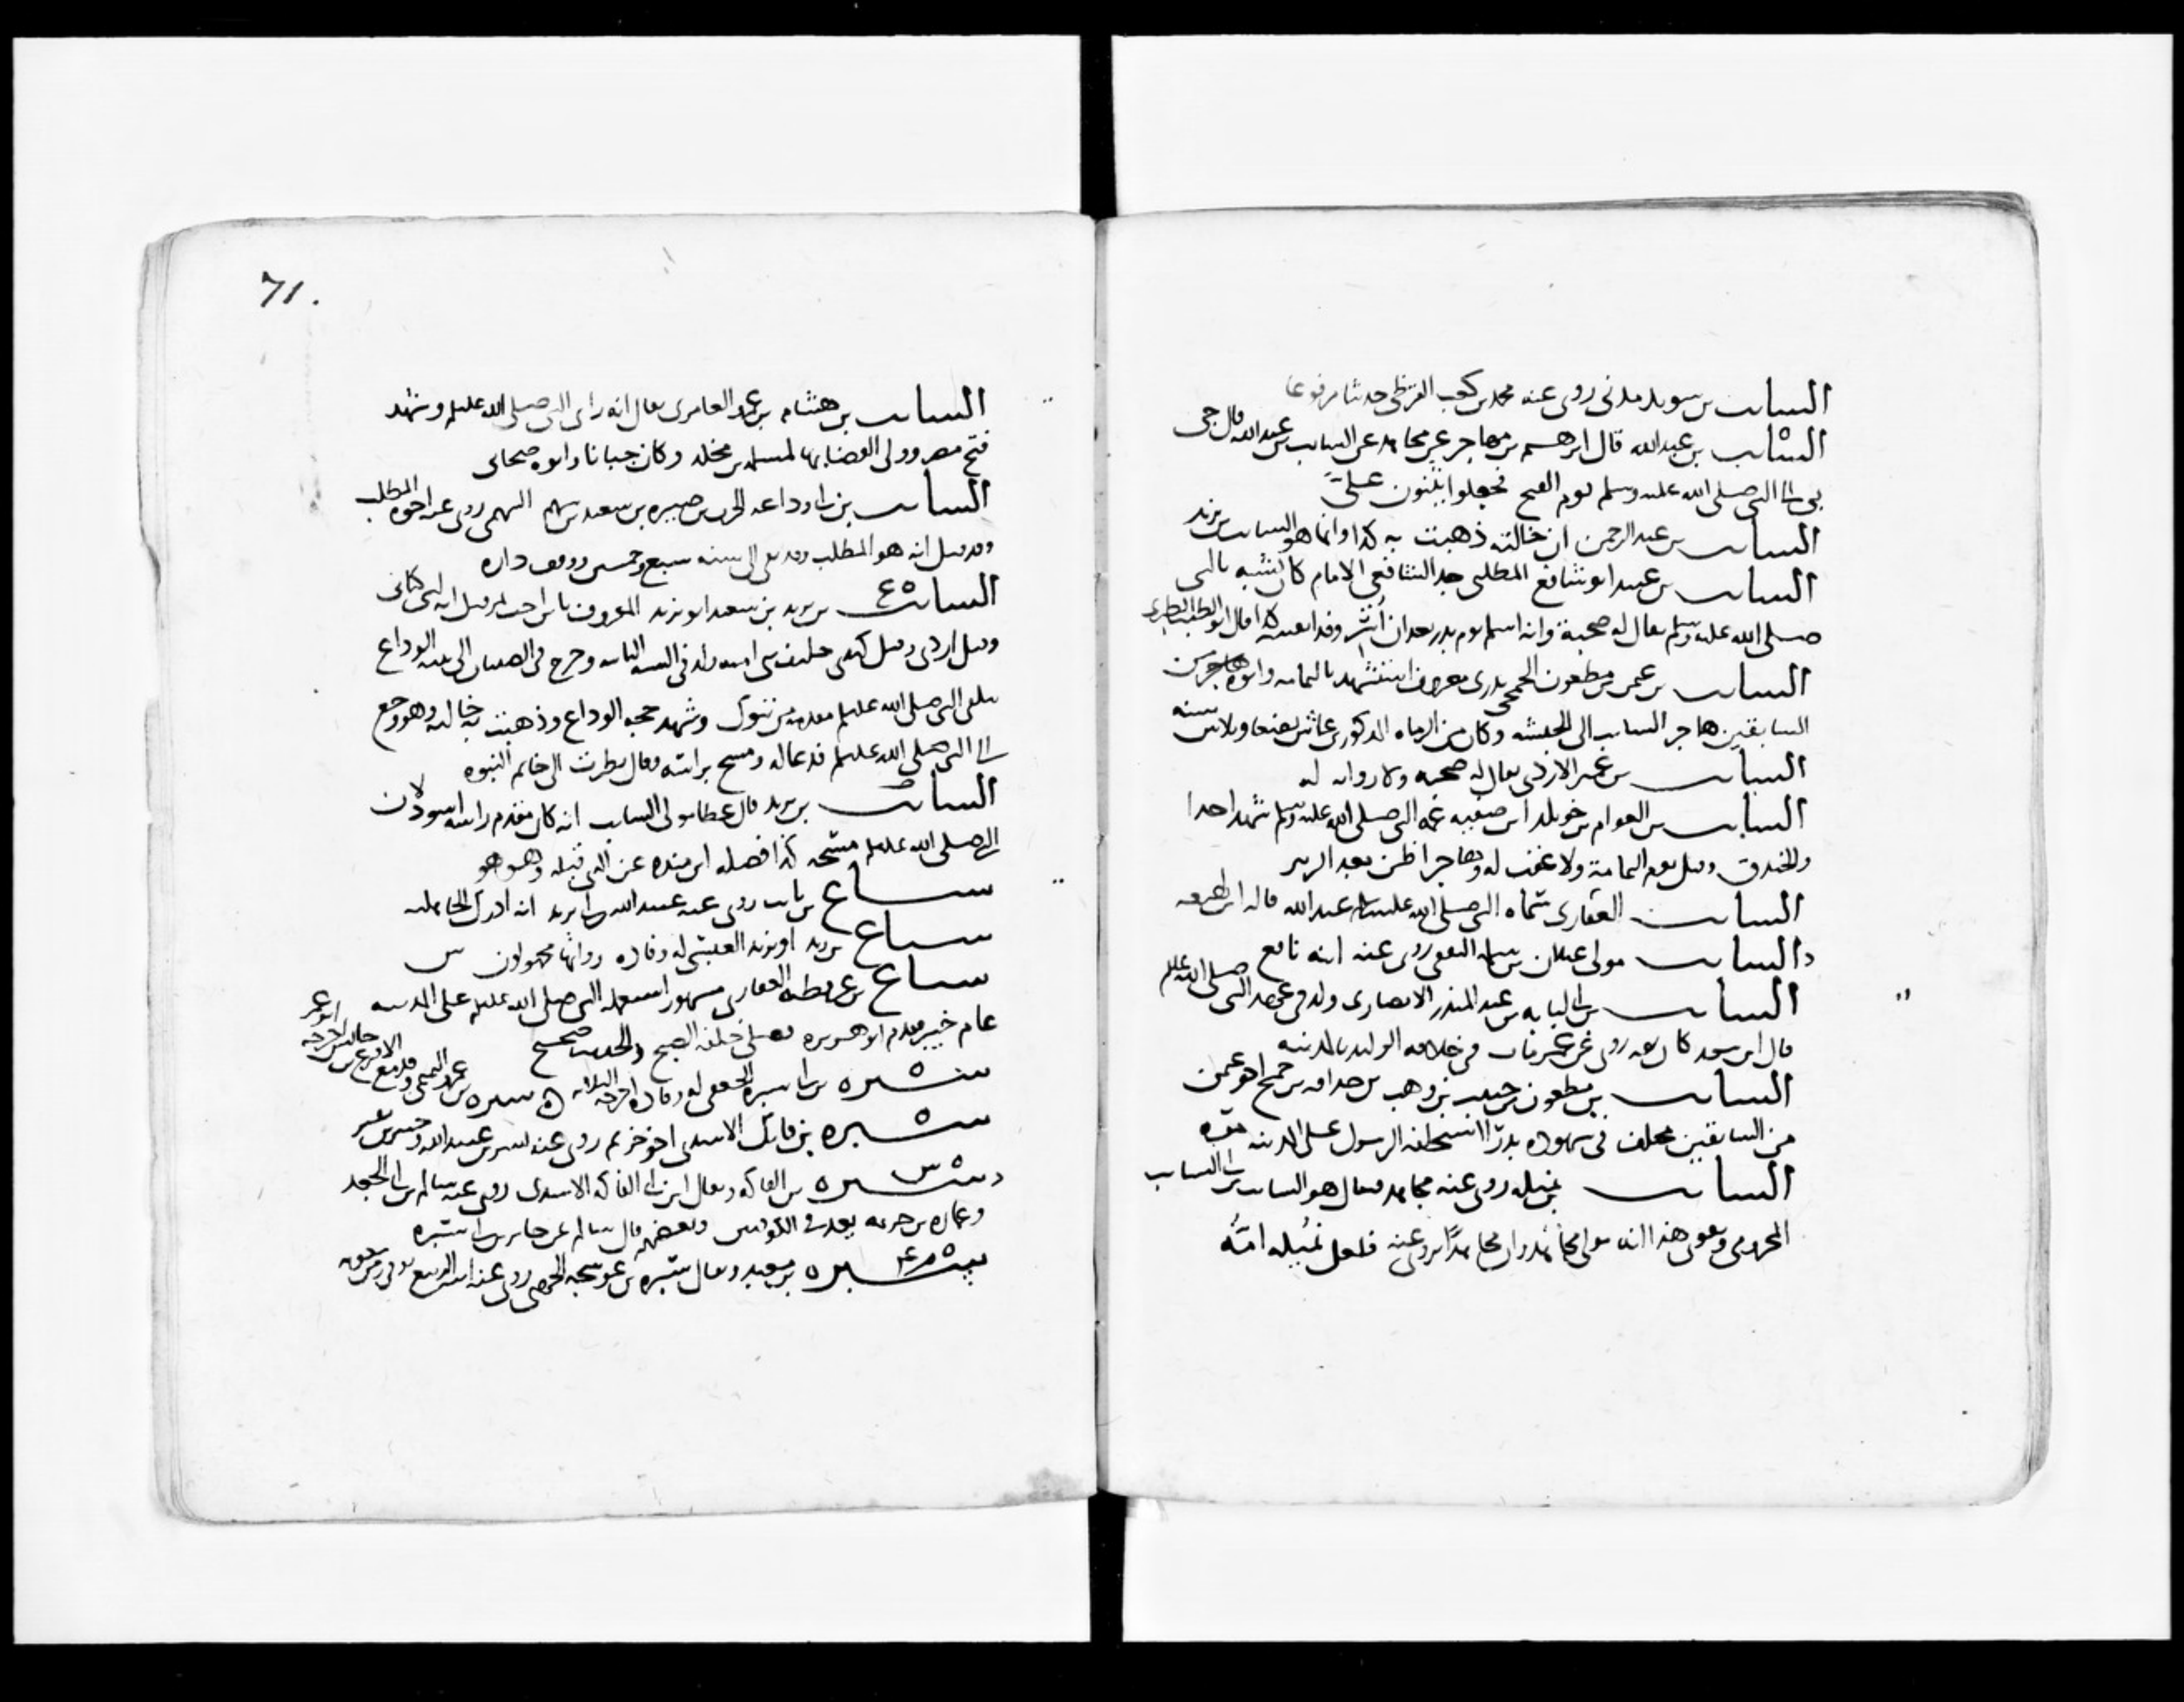 السائب بن سويد مدني روى عنه محمد بن كعب القرظي حديثا مرفوعا
السائب بن عبد الله قال ابرهيم بن مهاجر عن مجاهد عن السائب بن عبد الله قال جئ
بي الى النبي صلى الله عليه وسلم يوم الفتح فجعلوا يثنون عليّ
السائب بن عبد الرحمن ان خالته ذهبت به كذا وانما هو السائب بن يزيد
السائب بن عبيد ابو شافع المطلبي جد الشافعي الامام كان يشبه بالنبي
صلى الله عليه وسلم يقال له صحبة وانه اسلم يوم بدر بعد ان أُسر وفدا نفسه كذا قال ابو الطيب الطبري
السائب بن عثمن بن مظعون الجمحي بدري معروف استشهد باليمامه وابوه من
السابقين هاجر السائب الى الحبشه وكان من الرماه المذكورين عاش بضعا وثلاثين سنه
السائب بن عمير الازدي يقال له صحبه ولا روايه له
السائب بن العوام بن خويلد ابن صفيه عمة النبي صلى الله عليه وسلم شهد احدا
والخندق وقيل يوم اليمامة ولا عقب له وهاجر اظن بعد الزبير
السائب الغفاري سماه النبي صلى الله عليه وسلم عبد الله قاله ابن لهيعه
د السائب مولى غيلان بن سلمه الثقفي روى عنه ابنه نافع
السائب بن ابي لبابه بن عبد المنذر الانصاري ولد في عهد النبي صلى الله عليه
قال ابن سعد كان ثقه روى عن عمر مات في خلافه الوليد بالمدينه
السائب بن مظعون بن حبيب بن وهب بن حذافه بن جمح اخو عثمن
من السابقين مختلف في شهوده بدرًا استخلفه الرسول على المدينه مره
السائب بن نميله روى عنه مجاهد فيقال هو السائب بن ابي السائب
المخزومي ويقوي هذا انه مولى مجاهد وان مجاهدًا يروي عنه فلعل نُميله امُّه
71.
السائب بن هشام بن عمرو العامري يقال انه راى النبي صلى الله عليه وشهد
فتح مصر وولي القضا بها لمسلمه بن مخلد وكان جبانا وابوه صحابي
السائب بن ابي وداعه الحرث بن صبيره بن سعيد بن سهم السهمي روى عنه اخوه المطلب
وقد قيل انه هو المطلب وقد بقي الى سنه سبع وخمسين ووقف داره
السائب ع بن يزيد بن سعيد ابو يزيد المعروف بابن اخت نمر قيل انه ليثي كناني
وقيل ازدي وقيل كندي حليف بني اميه ولد في السنه الثانيه وخرج في الصبيان الى ثنيه الوداع
يتلقى النبي صلى الله عليه مقدمه من تبوك وشهد حجه الوداع وذهبت به خالته وهو وجع
الى النبي صلى الله عليه فدعا له ومسح براسه وقال نظرت الى خاتم النبوه
السائب بن يزيد قال عطا مولى السائب انه كان مقدم راسه اسود لان
النبي صلى الله عليه مسحه كذا فصله ابن منده عن الذي قبله وهو هو
سباع بن ثابت روى عنه عبيد الله بن ابي يزيد انه ادرك الجاهليه
سباع بن زيد او يزيد العبسي له وفاده رواتها مجهولون
سباع بن عرفطه الغفاري مشهور استعمله النبي صلى الله عليه على المدينه
عام خيبر فقدم ابو هريره فصلى خلفه الصبح والحديث صحيح
سبره بن ابي سبره الجعفي له وفاده اخرجه الثلاثه ه سبره بن عمرو التميمي وفد مع الاقرع بن حابس اخرجه ابو عمر
سبره بن فاتك الاسدي اخو خريم روى عنه بسر بن عبيد الله وجبير بن نفير
س سبره بن الفاكه ويقال ابن ابي الفاكه الاسدي روى عنه سالم بن ابي الجعد
وعماره بن خزيمه يعد في الكوفيين وبعضهم قال سالم عن جابر بن ابي سبره
م ع سبره بن معبد ويقال سبره بن عوسجه الجهني روى عنه ابنه الربيع